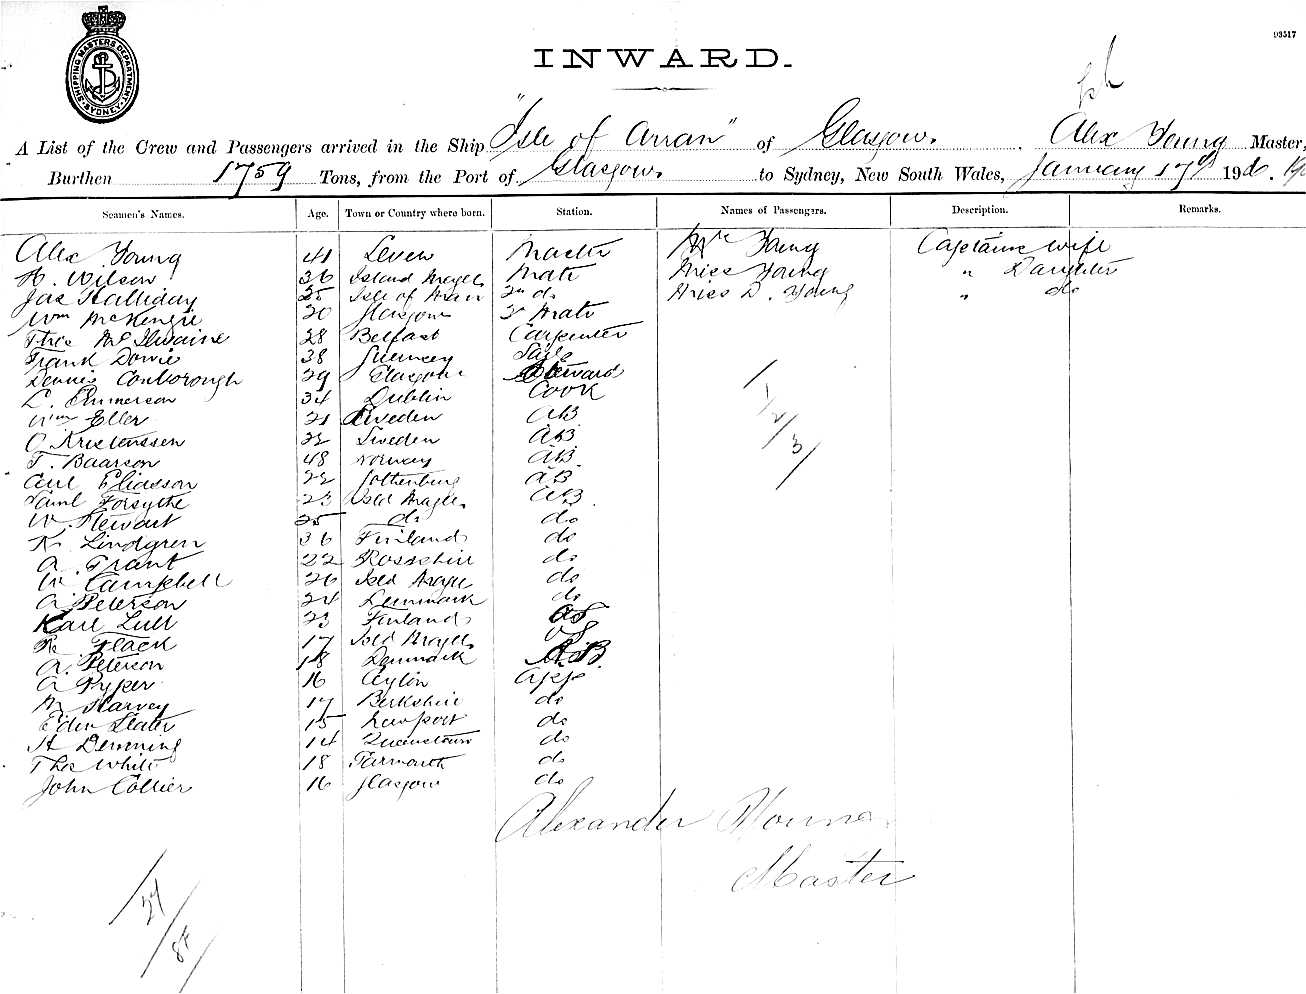 93517
INWARD.
SHIPPING MASTERS DEPARTMENT SYDNEY
A List of the Crew and Passengers arrived in the Ship "Isle of Arran" of Glasgow. Alex Young Master,
Burthen 1759 Tons, from the Port of Glasgow. to Sydney, New South Wales, January 17th 190
Seamen's Names. Age. Town or Country where born. Station. Names of Passengers. Description. Remarks.
Alex Young 41 Leven Master Mrs Young Captains wife
H. Wilson 36 Island Magee Mate Miss Young " Daughter
Jas Halliday 25 Isle of Man 2nd do Miss D. Young " do
Wm McKenzie 20 Glasgow 3 Mate
Thos McIlwaine 28 Belfast Carpenter
Frank Dowie 38 Guernsey Sails
Dennis Conborough 29 Glasgow Steward
L. Emmerson 34 Dublin Cook
Wm Eller 21 Sweden AB
O Kristenssen 22 Sweden AB
T. Baarson 48 Norway AB
Carl Eliasson 22 Gottenburg AB
Saml Forsythe 23 Isld Magee AB
W. Stewart 25 do do
K. Lindgren 36 Finland do
A. Grant 22 Rosshire do
W. Campbell 26 Isld Magee do
A. Peterson 24 Denmark do
Karl Lull 23 Finland
R. Flack 17 Isld Magee OS
A. Peterson 18 Denmark A.B.
A Pyper 16 Ceylon App
M Harvey 17 Berkshire do
Edw Slater 15 Newport do
H Denning 14 Queenstown do
Thos White 18 Yarmouth do
John Collier 16 Glasgow do
1/2/3/
Alexander Young
Master
/27/